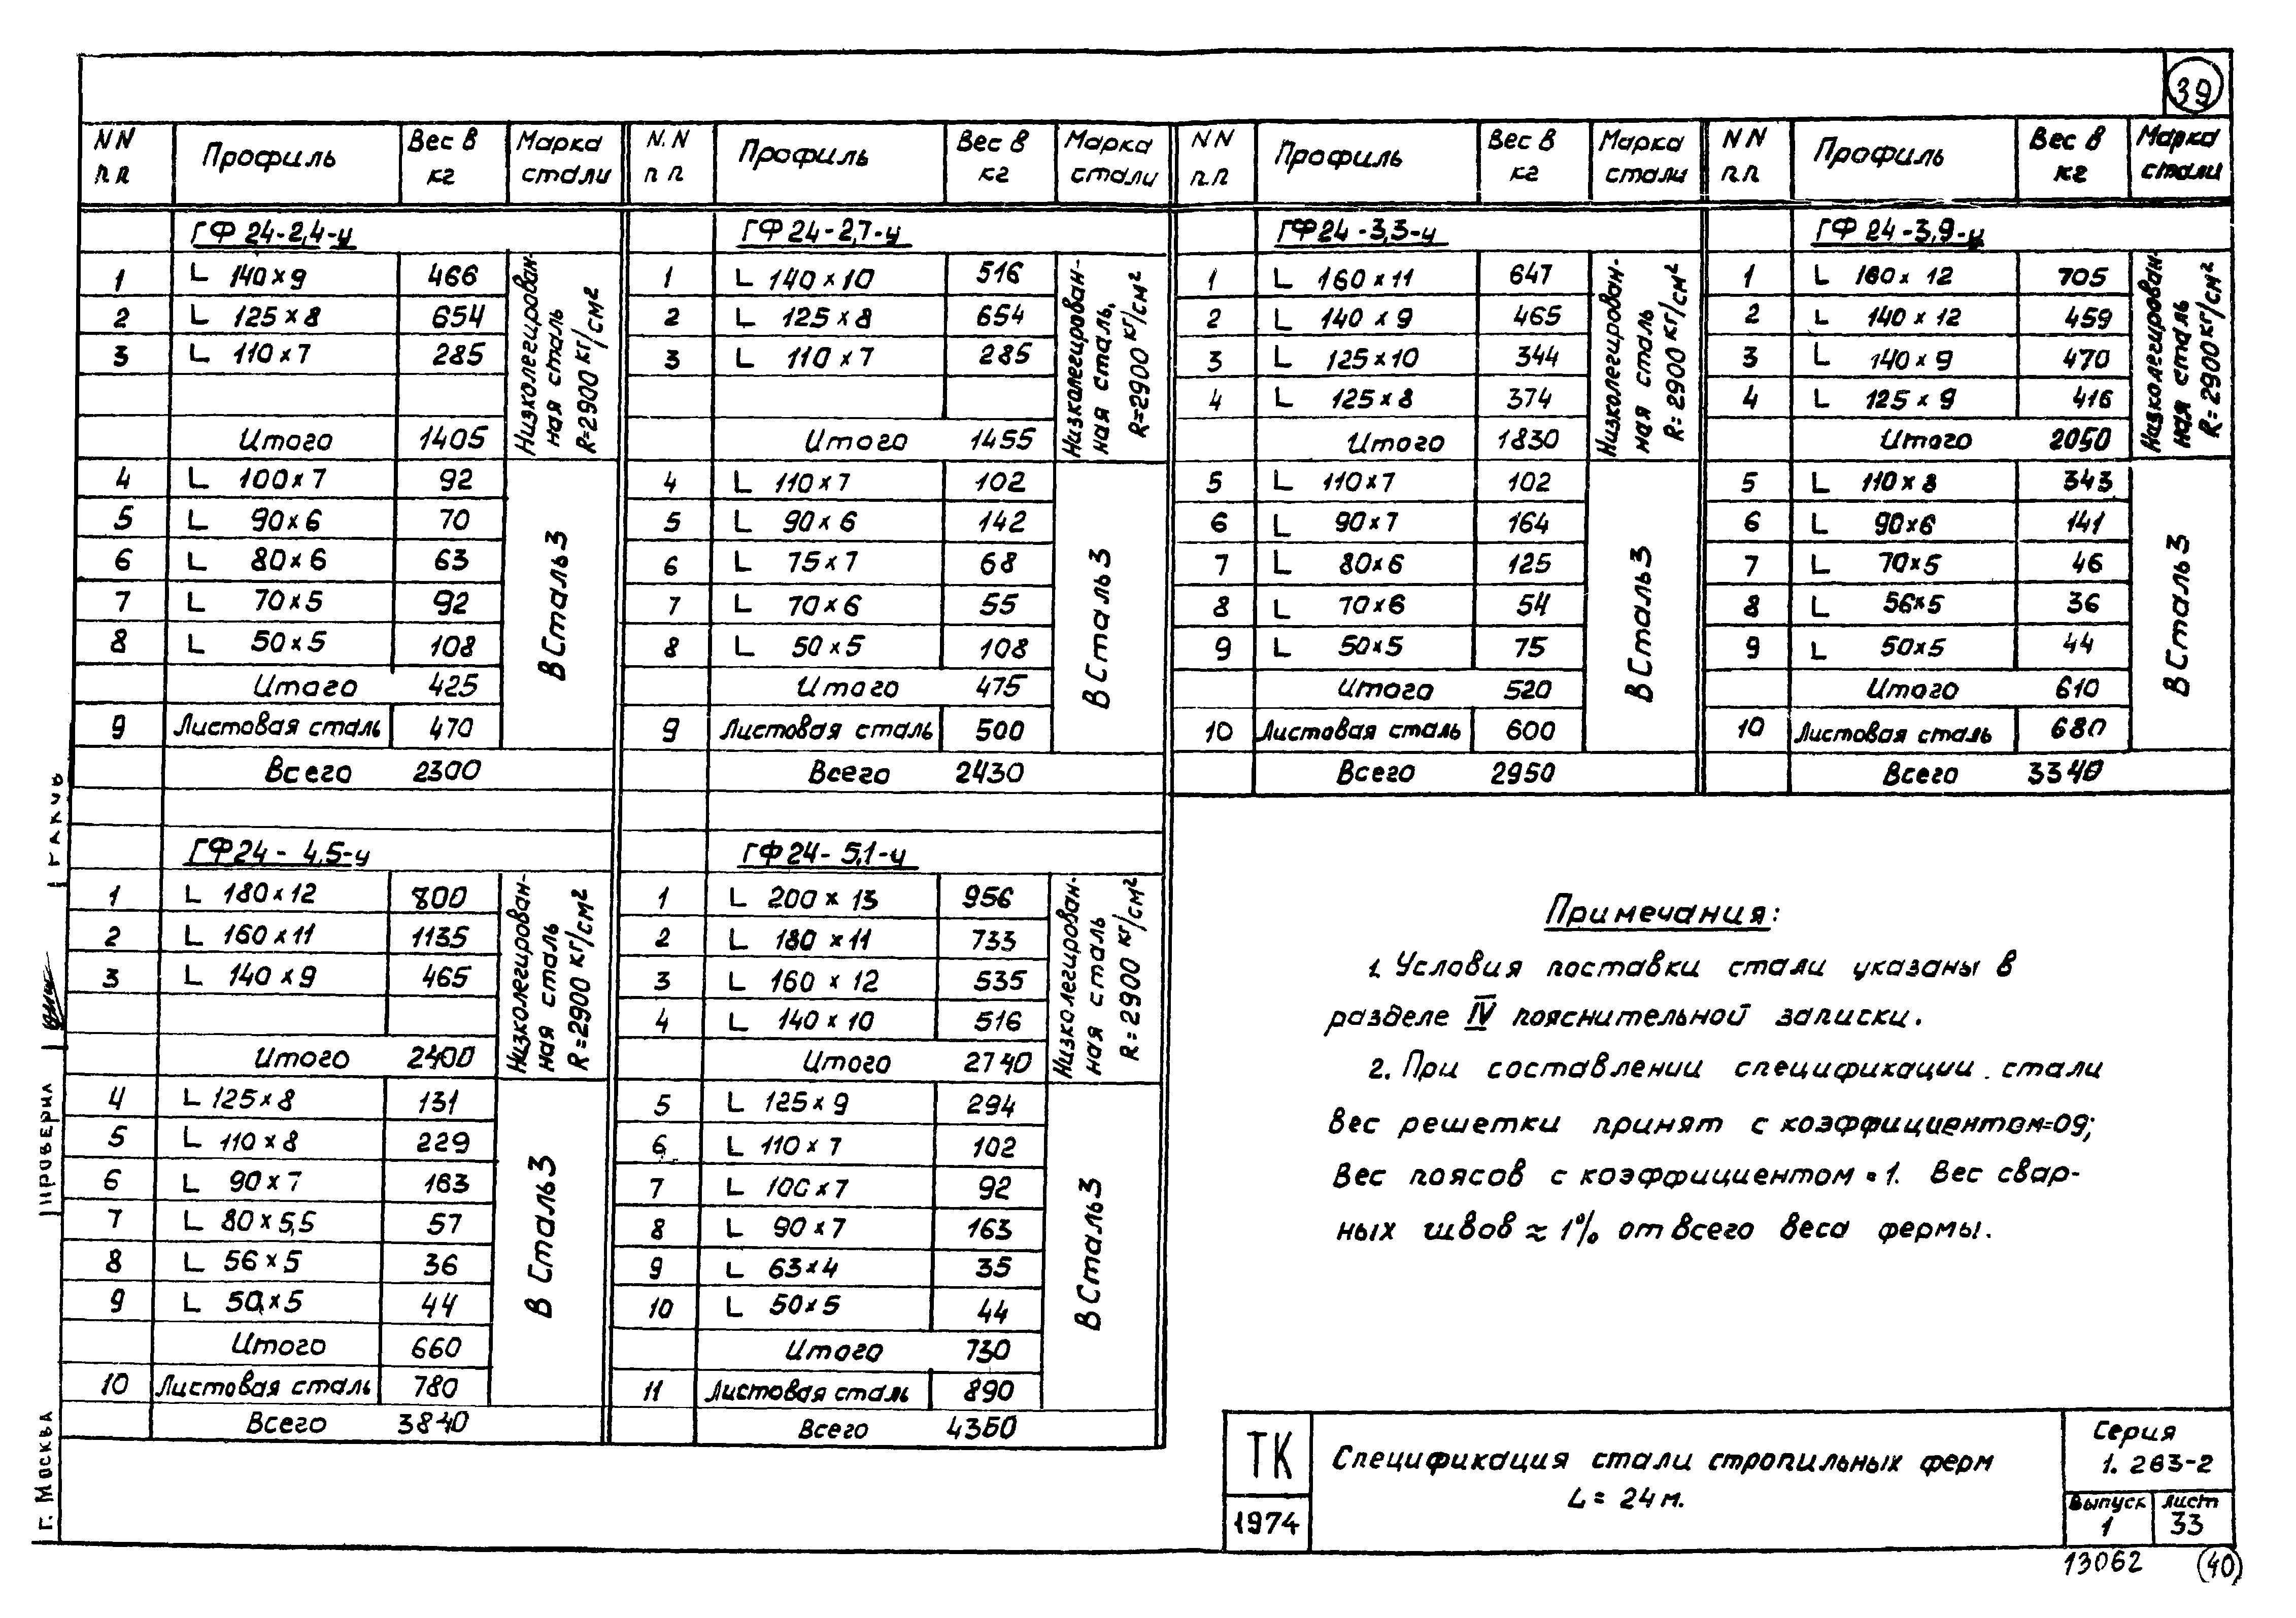 39
NN п.п | Профиль | Вес в кг | Марка стали | N.N п п | Профиль | Вес в кг | Марка стали | NN п.п | Профиль | Вес в кг | Марка стали | NN п.п | Профиль | Вес в кг | Марка стали
ГФ 24-2,4-у
1 L 140×9 466
2 L 125×8 654
3 L 110×7 285
Итого 1405
Низколегирован-
ная сталь
R=2900 кг/см²
4 L 100×7 92
5 L 90×6 70
6 L 80×6 63
7 L 70×5 92
8 L 50×5 108
Итого 425
9 Листовая сталь 470
В Сталь 3
Всего 2300
ГФ 24-2,7-у
1 L 140×10 516
2 L 125×8 654
3 L 110×7 285
Итого 1455
Низколегирован-
ная сталь,
R=2900 кг/см²
4 L 110×7 102
5 L 90×6 142
6 L 75×7 68
7 L 70×6 55
8 L 50×5 108
Итого 475
9 Листовая сталь 500
В Сталь 3
Всего 2430
ГФ 24-3,3-у
1 L 160×11 647
2 L 140×9 465
3 L 125×10 344
4 L 125×8 374
Итого 1830
Низколегирован-
ная сталь
R=2900 кг/см²
5 L 110×7 102
6 L 90×7 164
7 L 80×6 125
8 L 70×6 54
9 L 50×5 75
Итого 520
10 Листовая сталь 600
В Сталь 3
Всего 2950
ГФ 24-3,9-у
1 L 160×12 705
2 L 140×12 459
3 L 140×9 470
4 L 125×9 416
Итого 2050
Низколегирован-
ная сталь
R=2900 кг/см²
5 L 110×8 343
6 L 90×6 141
7 L 70×5 46
8 L 56×5 36
9 L 50×5 44
Итого 610
10 Листовая сталь 680
В Сталь 3
Всего 3340
ГФ 24-4,5-у
1 L 180×12 800
2 L 160×11 1135
3 L 140×9 465
Итого 2400
Низколегирован-
ная сталь
R=2900 кг/см²
4 L 125×8 131
5 L 110×8 229
6 L 90×7 163
7 L 80×5,5 57
8 L 56×5 36
9 L 50×5 44
Итого 660
10 Листовая сталь 780
В Сталь 3
Всего 3840
ГФ 24-5,1-у
1 L 200×13 956
2 L 180×11 733
3 L 160×12 535
4 L 140×10 516
Итого 2740
Низколегирован-
ная сталь
R=2900 кг/см²
5 L 125×9 294
6 L 110×7 102
7 L 100×7 92
8 L 90×7 163
9 L 63×4 35
10 L 50×5 44
Итого 730
11 Листовая сталь 890
В Сталь 3
Всего 4360
Примечания:
1. Условия поставки стали указаны в
разделе IV пояснительной записки.
2. При составлении спецификации стали
вес решетки принят с коэффициентом=09;
Вес поясов с коэффициентом = 1. Вес свар-
ных швов ≈ 1% от всего веса фермы.
ТК
1974
Спецификация стали стропильных ферм
L = 24 м.
Серия
1. 263-2
Выпуск 1
Лист 33
13062
(40)
Проверил
г. Москва